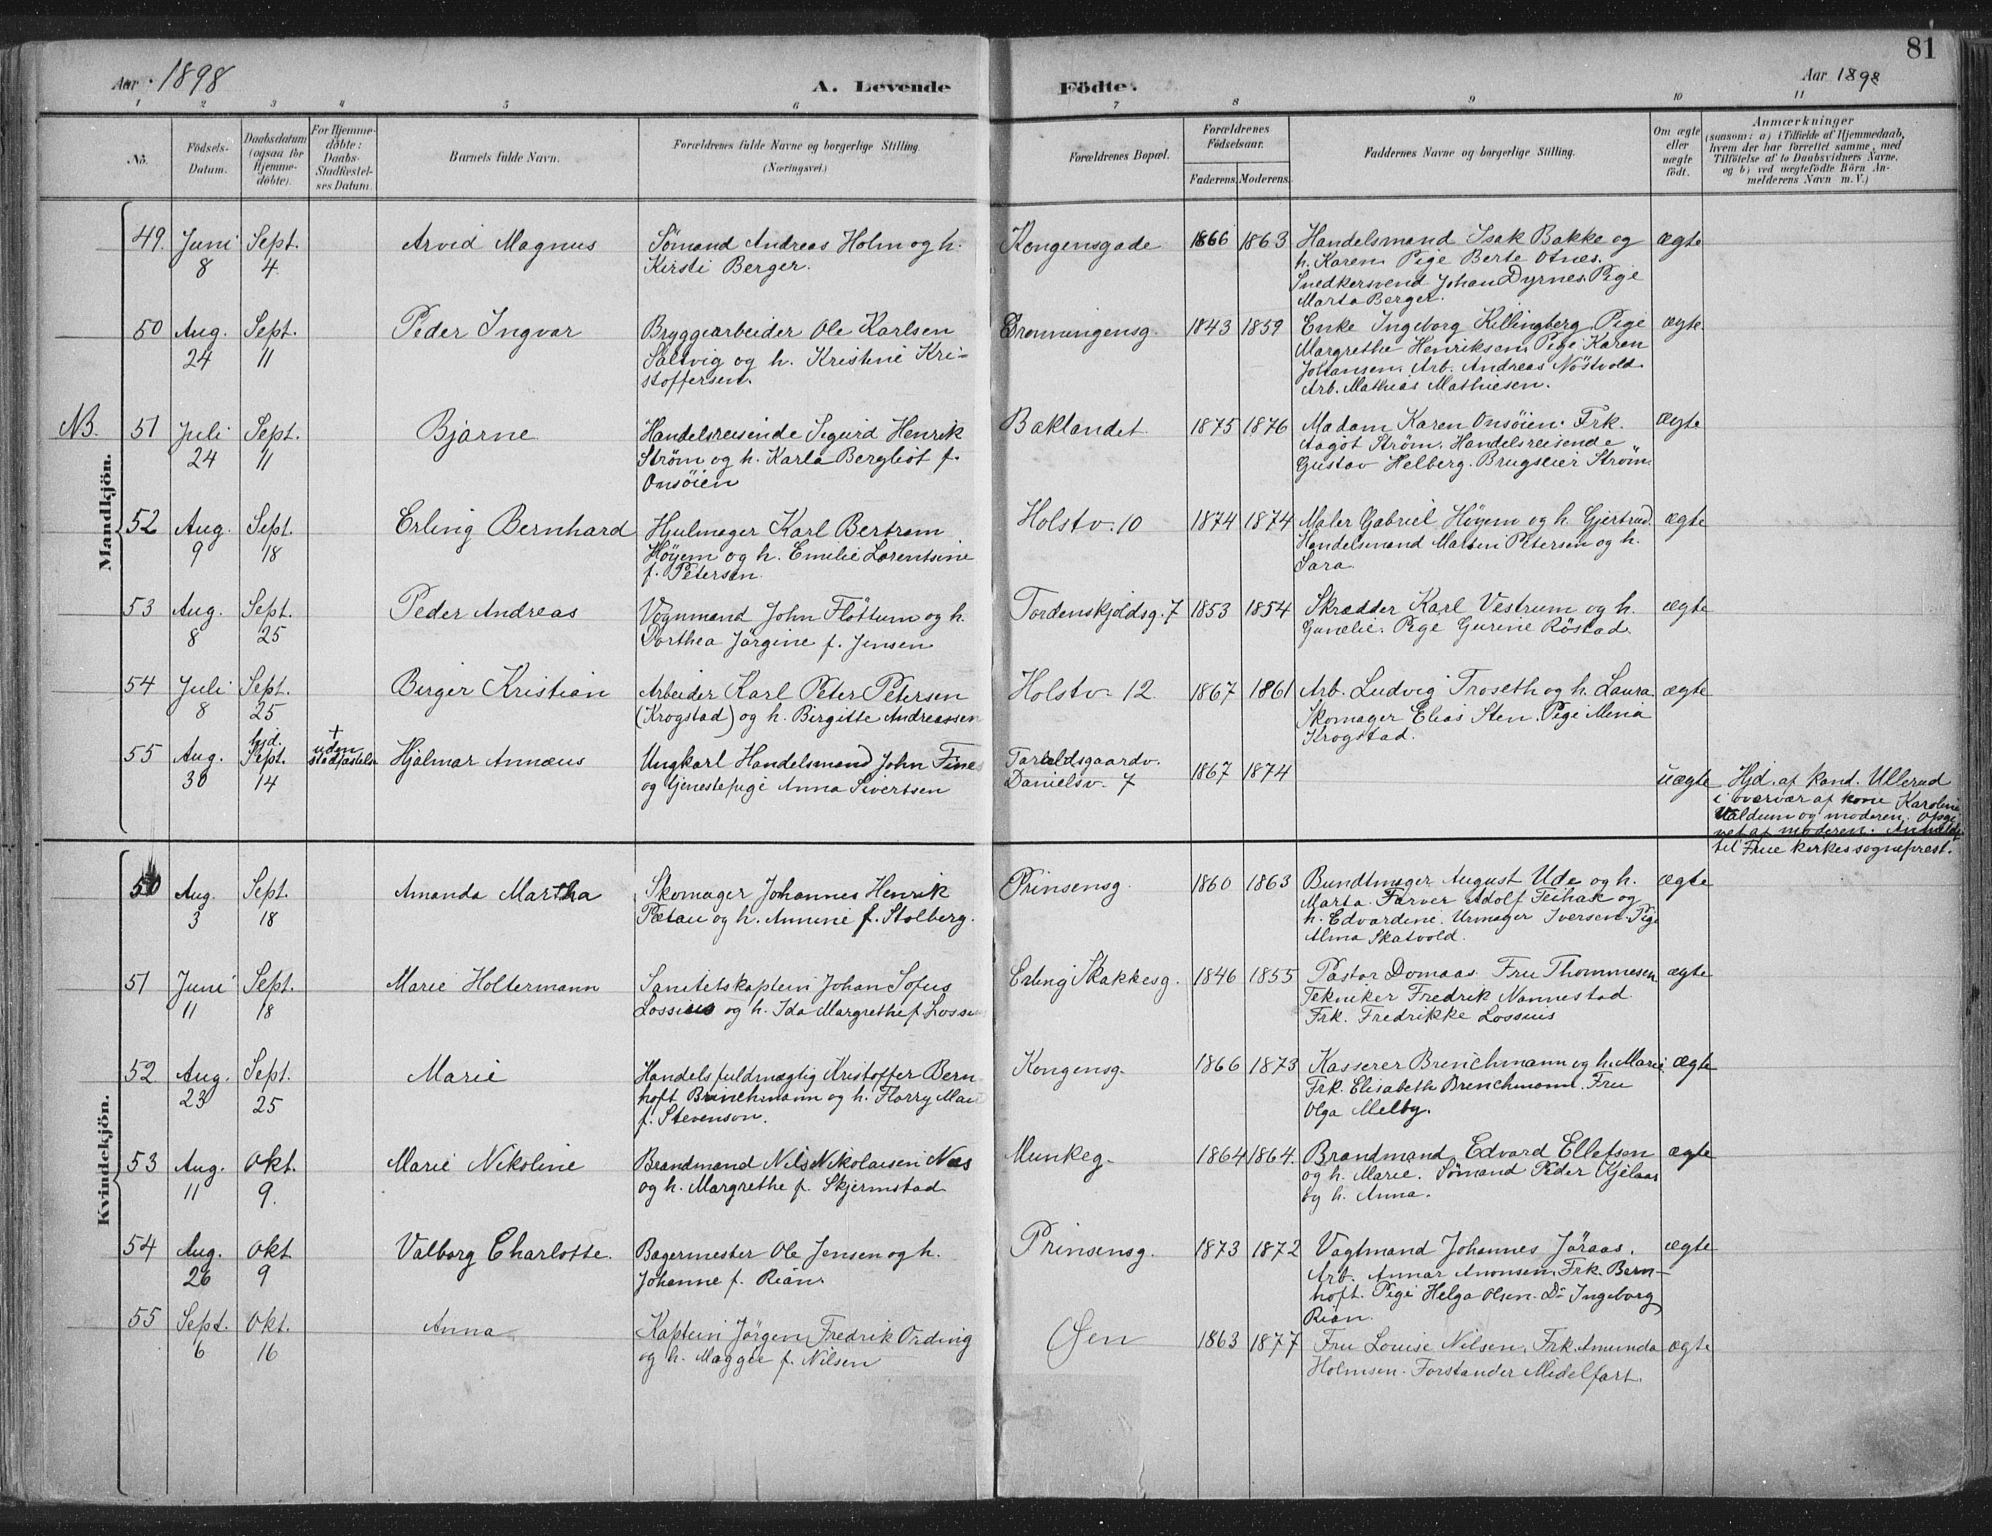 81
Aar 1898 A. Levende Födte. Aar 1898
1 2 3 4 5 6 7 8 9 10 11
No. Födsels-Datum. Daabsdatum (ogsaa for Hjemme-döbte). For Hjemme-döbte: Daabs-Stadfæstel-ses Datum. Barnets fulde Navn. Forældrenes fulde Navne og borgerlige Stilling. (Næringsvei.) Forældrenes Bopæl. Forældrenes Födselsaar. Faderens. Moderens. Faddernes Navne og borgerlige Stilling. Om ægte eller uægte födt. Anmærkninger
(saasom: a) i Tilfælde af Hjemmedaab,
hvem der har forrettet samme, med
Tilföielse af to Daabsvidners Navne.
og b) ved uægtefödte Börn An-
melderens Navn m. V.)
Mandkjön.
49. Juni Sept. Arvid Magnus Sömand Andreas Holm og h. Kongensgade 1866 1863 Handelsmand Isak Bakke og ægte
8 4. Kirsti Berger. h. Karen. Pige Berte Otnes.
Snedkersvend Johan Dyrnes. Pige
Marta Berger.
50 Aug. Sept. Peder Ingvar Bryggearbeider Ole Karlsen Dronningensg. 1843 1859 Enke Ingeborg Killingberg. Pige ægte
24 11 Saltvig og h. Kristine Kri- Margrethe Henriksen. Pige Karen
stoffersen. Johansen. Arb. Andreas Nöstvold.
Arb. Mathias Mathiesen.
NB. 51 Juli Sept. Bjarne Handelsreisende Sigurd Henrik Baklandet 1875 1876 Madam Karen Onsöien. Frk. ægte
24 11 Ström og h. Karla Bergliot f. Aagot Ström. Handelsreisende
Onsöien Gustav Helberg. Brugseier Ström.
52 Aug. Sept. Erling Bernhard Hjulmager Karl Bertram Holstv. 10 1874 1874 Maler Gabriel Höyem og h. Gjertrud. ægte
9 18 Höyem og h. Emilie Lorentsine Handelsmand Martin Petersen og h.
f. Petersen. Sara.
53 Aug. Sept. Peder Andreas Vognmand John Flöttum og h. Tordenskjoldsg. 7 1853 1854 Skrædder Karl Vestrum og h. ægte
8 25 Dorthea Jörgine f. Jensen Gunelie. Pige Gurine Röstad.
54 Juli Sept. Birger Kristian Arbeider Karl Peter Petersen Holstv. 12 1867 1861 Arb. Ludvig Troseth og h. Laura. ægte
8 25 (Krogstad) og h. Birgitte Andreassen Skomager Elias Sten. Pige Mina
Krogstad.
55 Aug. hjd. Sept. + uden stadfæstelse Hjalmar Annæus Ungkarl Handelsmand John Fines Taraldsgaardv. 1867 1874 uægte Hjd. af kand. Ullerud
30 14 og Tjenestepige Anna Sivertsen Danielsv. 7 i overvær af kone Karoline
Valdum og moderen. Opgi-
vet af moderen. Anmeldt
til Frue kirkes sogneprest.
Kvindekjön.
50 Aug. Sept. Amanda Martha Skomager Johannes Henrik Prinsensg. 1860 1863 Bundtmager August Ude og h. ægte
3 18 Pætau og h. Annine f. Stolberg. Marta. Farver Adolf Feihak og
h. Edvardine. Urmager Iversen. Pige
Alma Skatvold.
51 Juni Sept. Marie Holtermann Sanitetskaptein Johan Sofus Erling Skakkesg. 1846 1855 Pastor Domaas Fru Thommesen ægte
11 18 Lossius og h. Ida Margrethe f. Lossius Tekniker Fredrik Nannestad
Frk. Fredrikke Lossius
52 Aug. Sept. Marie Handelsfuldmægtig Kristoffer Bern- Kongensg. 1866 1873 Kasserer Brenchmann og h. Marie ægte
23 25 hoft Brinchmann og h. Florry Mari Frk. Elisabeth Brenchmann. Fru
f. Stevenson. Olga Melby.
53 Aug. Okt. Marie Nikoline Brandmand Nils Nikolaisen Næs Munkeg. 1864 1864. Brandmand Edvard Ellefsen ægte
11 9. og h. Margrethe f. Skjermstad og h. Marie. Sömand Peder Kjelaas
og h. Anna.
54 Aug. Okt. Valborg Charlotte. Bagermester Ole Jensen og h. Prinsensg. 1873 1872 Vagtmand Johannes Jöraas. ægte
26 9 Johanne f. Rian. Arb. Annar Aronsen. Frk. Bern-
hoft. Pige Helga Olsen. Do Ingeborg
Rian.
55 Sept. Okt. Anna Kaptein Jörgen Fredrik Ording Øen 1863 1877 Fru Louise Nilsen. Frk. Amunda ægte
6 16 og h. Maggie f. Nilsen Holmsen. Forstander Midelfart.